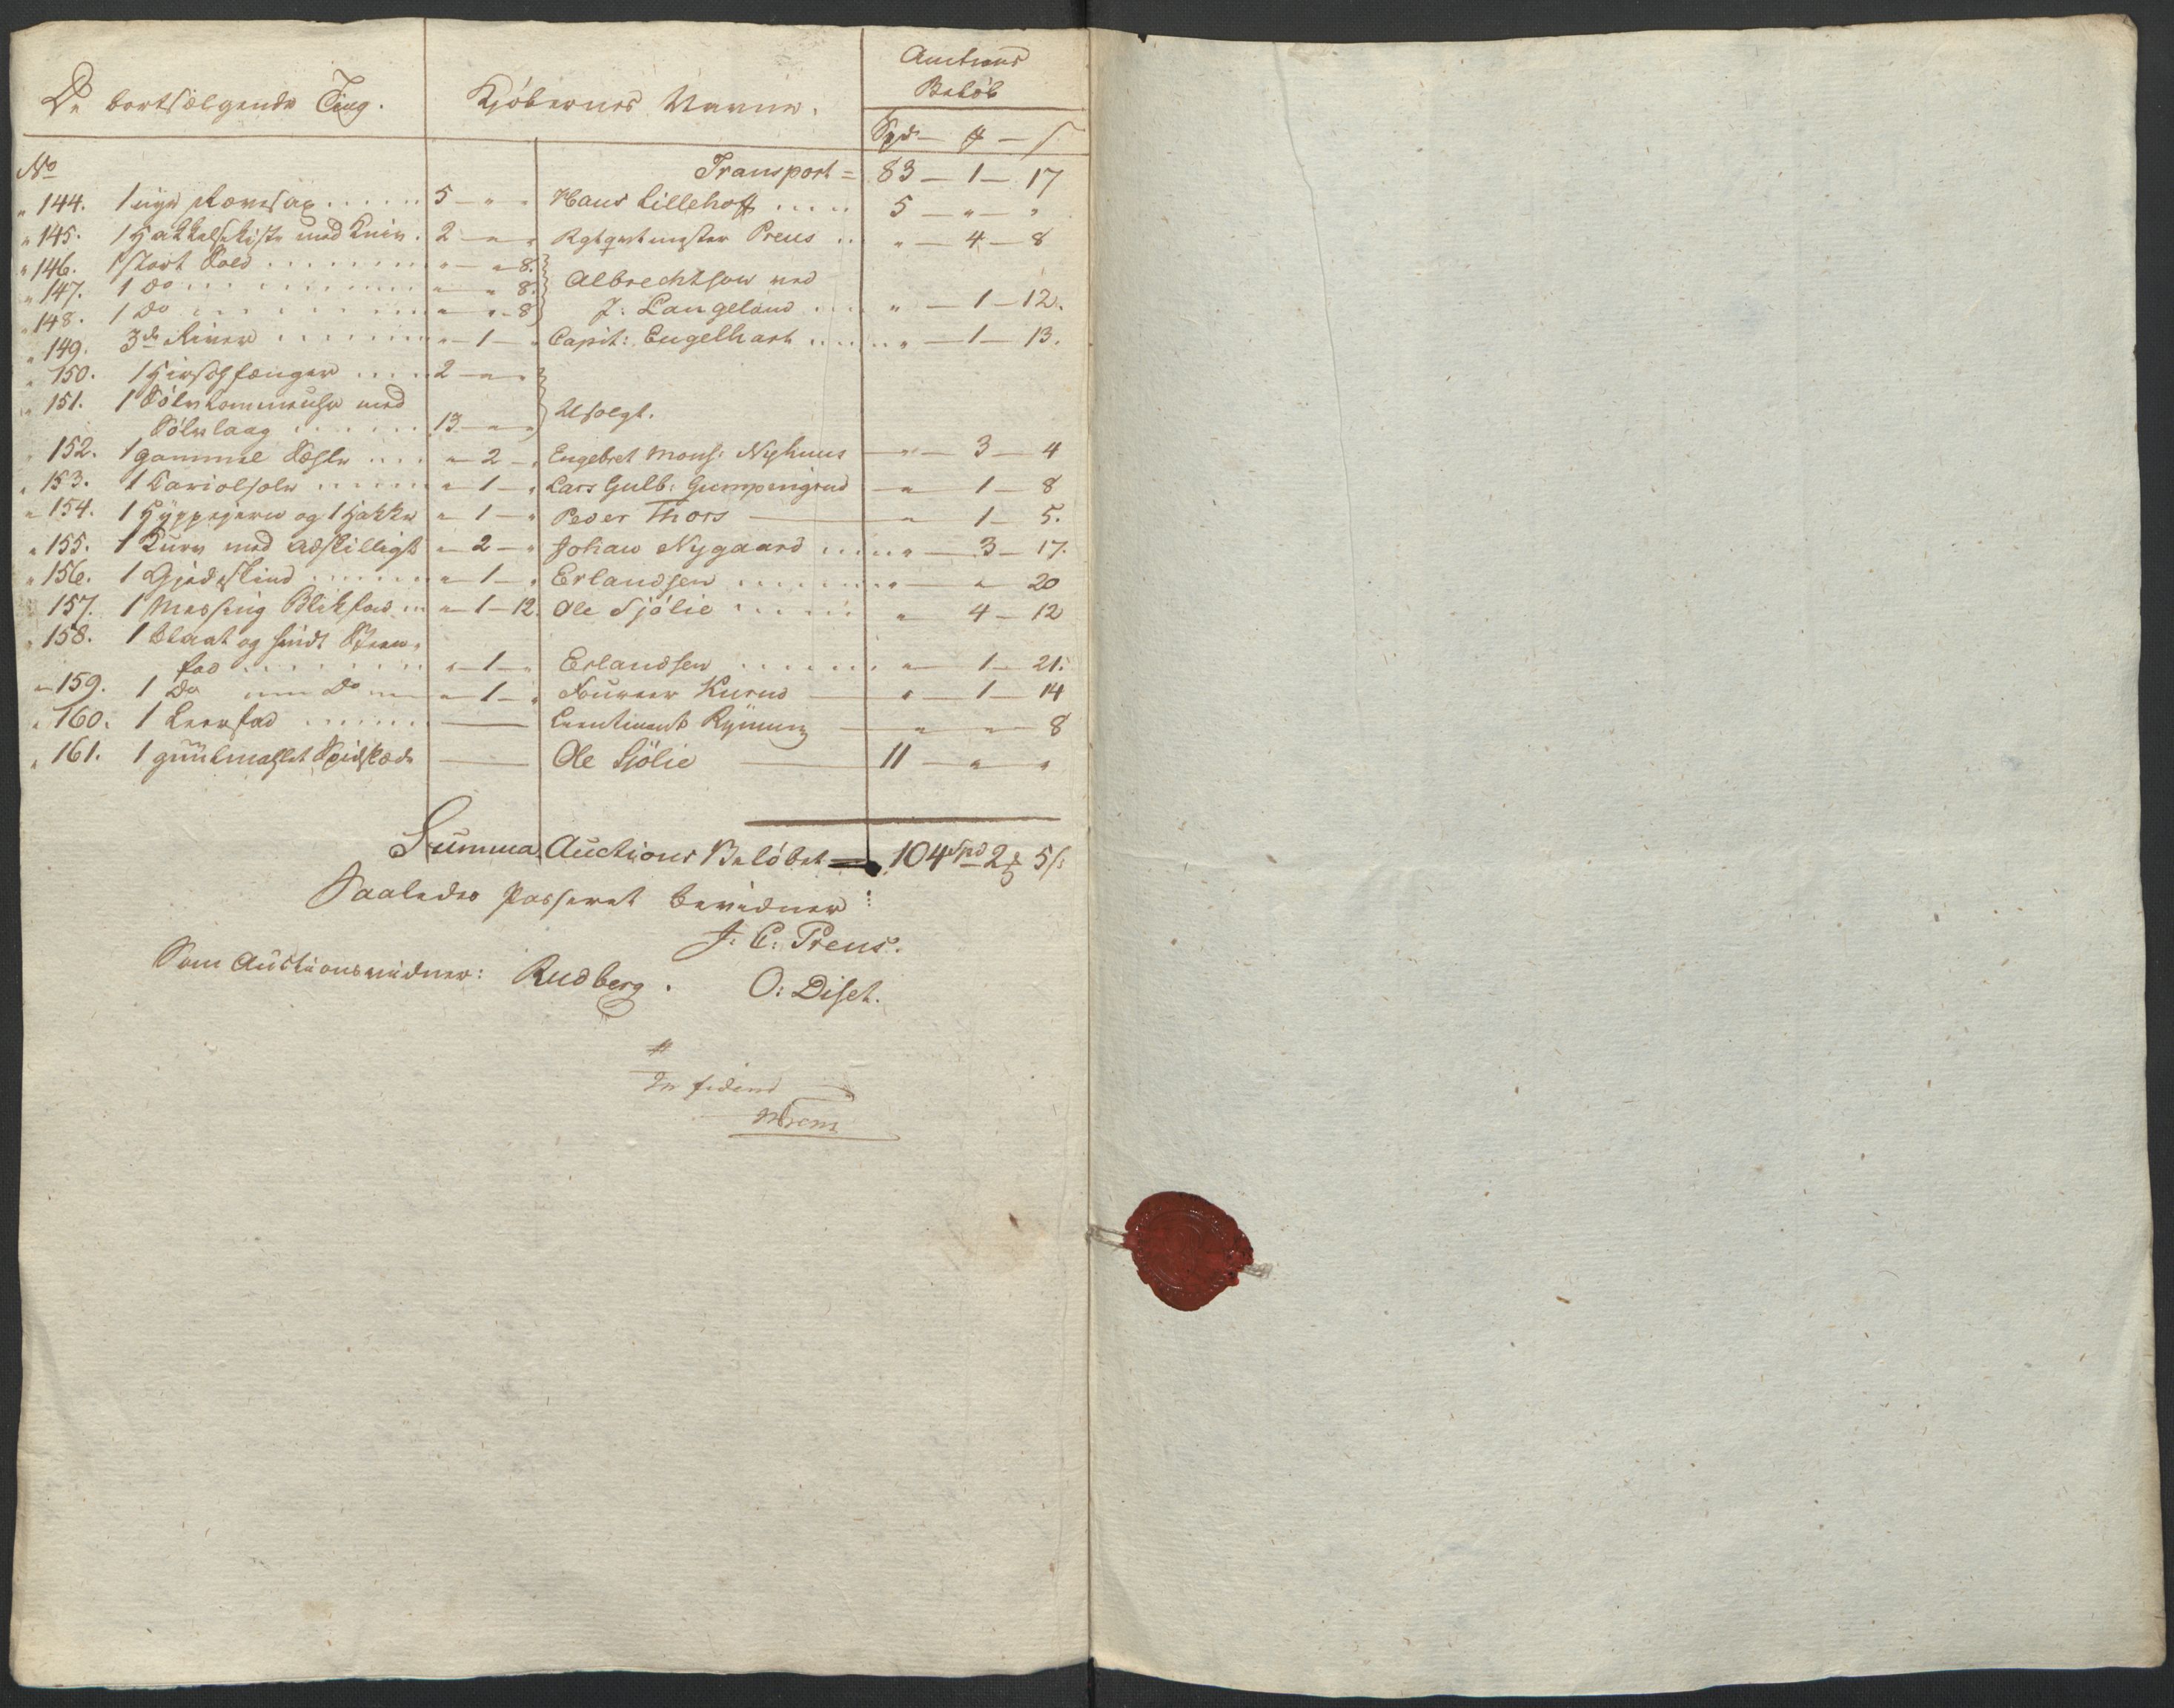 De bortsælgende Ting. Kjøbernes Navne. Auctions
Beløb
Spd — # — s
No Transport = 83 — 1 — 17
" 144. 1 nye Rævesax ..... 5 — " — " Hans Lillehoff ..... 5 — " — "
" 145. 1 Hakkelsekiste med Kniv. 2 — " — " Rgtqvtmester Preus .. " — 4 — 8
" 146. 1 stort Sold ........ " — " — 8. Albrechtson ved
" 147. 1 Do ........ " — " — 8.
" 148. 1 Do ........ " — " — 8 J: Langeland .... " — 1 — 12.
" 149. 3de River ........ " — 1 — " Capit: Engelhart ...... " — 1 — 13.
" 150. 1 Hirschfænger .... 2 — " — "
" 151. 1 Sølv med
Sølvlaag ...... 13 — " — " Usolgt.
" 152. 1 gammel .... " — 2 — " Engebret Mons: Nyhuus — " — 3 — 4
" 153. 1 Cariolsole ...... " — 1 — " Lars Gulb: — " 1 — 8
" 154. 1 Hyppejern og 1 Hakke " — 1 — " Peder Thors — " 1 — 5.
" 155. 1 Kurv med Adskilligt " — 2 — " Johan Nygaard ..... " — 3 — 17.
" 156. 1 Gjedeskind ...... " — 1 — " Erlandsen ...... " — " 20
" 157. 1 Messing Blikfad ... " — 1 — 12. Ole Sjølie ..... " 4 — 12
" 158. 1 blaat og hvidt Steen-
fad ....... " — 1 — " Erlandsen ...... " — 1 — 21.
" 159. 1 Do Do " — 1 — " Foureer Kurud — " — 1 — 14
" 160. 1 Leerfad ...... — Leutinant Rÿning — " — " — 8
" 161. 1 guulmahlet — Ole Sjölie — 11 — " — "
Summa Auctions Beløbet = 104 Spd 2 # 5 s:
Saaledes Passeret bevidner:
J: C: Preus.
Som Auctionsvidner: Rudberg. O: Diset.
#
In fidem